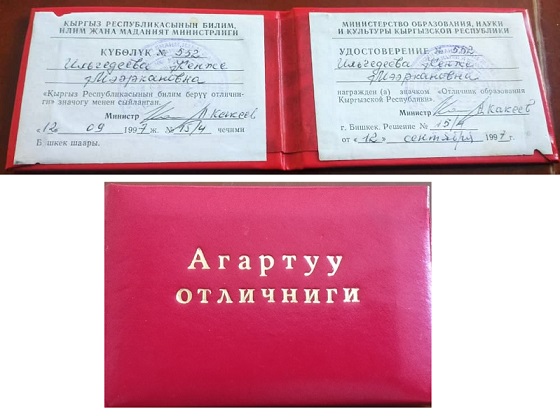 КЫРГЫЗ РЕСПУБЛИКАСЫНЫН БИЛИМ,
ИЛИМ ЖАНА МАДАНИЯТ МИНИСТРЛИГИ
КҮБӨЛҮК № 532
Ильгедеева Кенже
Мээркановна
«Кыргыз Республикасынын билим берүү отлични-
ги» значогу менен сыйланган.
Министр А Какеев
«12» 09 1997 ж. № 15/4 чечими
Бишкек шаары.
МИНИСТЕРСТВО ОБРАЗОВАНИЯ, НАУКИ
И КУЛЬТУРЫ КЫРГЫЗСКОЙ РЕСПУБЛИКИ
УДОСТОВЕРЕНИЕ № 532
Ильгедеева Кенже
Мээркановна
награжден (а) значком «Отличник образования
Кыргызской Республики».
Министр А Какеев
г. Бишкек. Решение № 15/4
от «12» сентября 1997 г.
Агартуу
отличниги